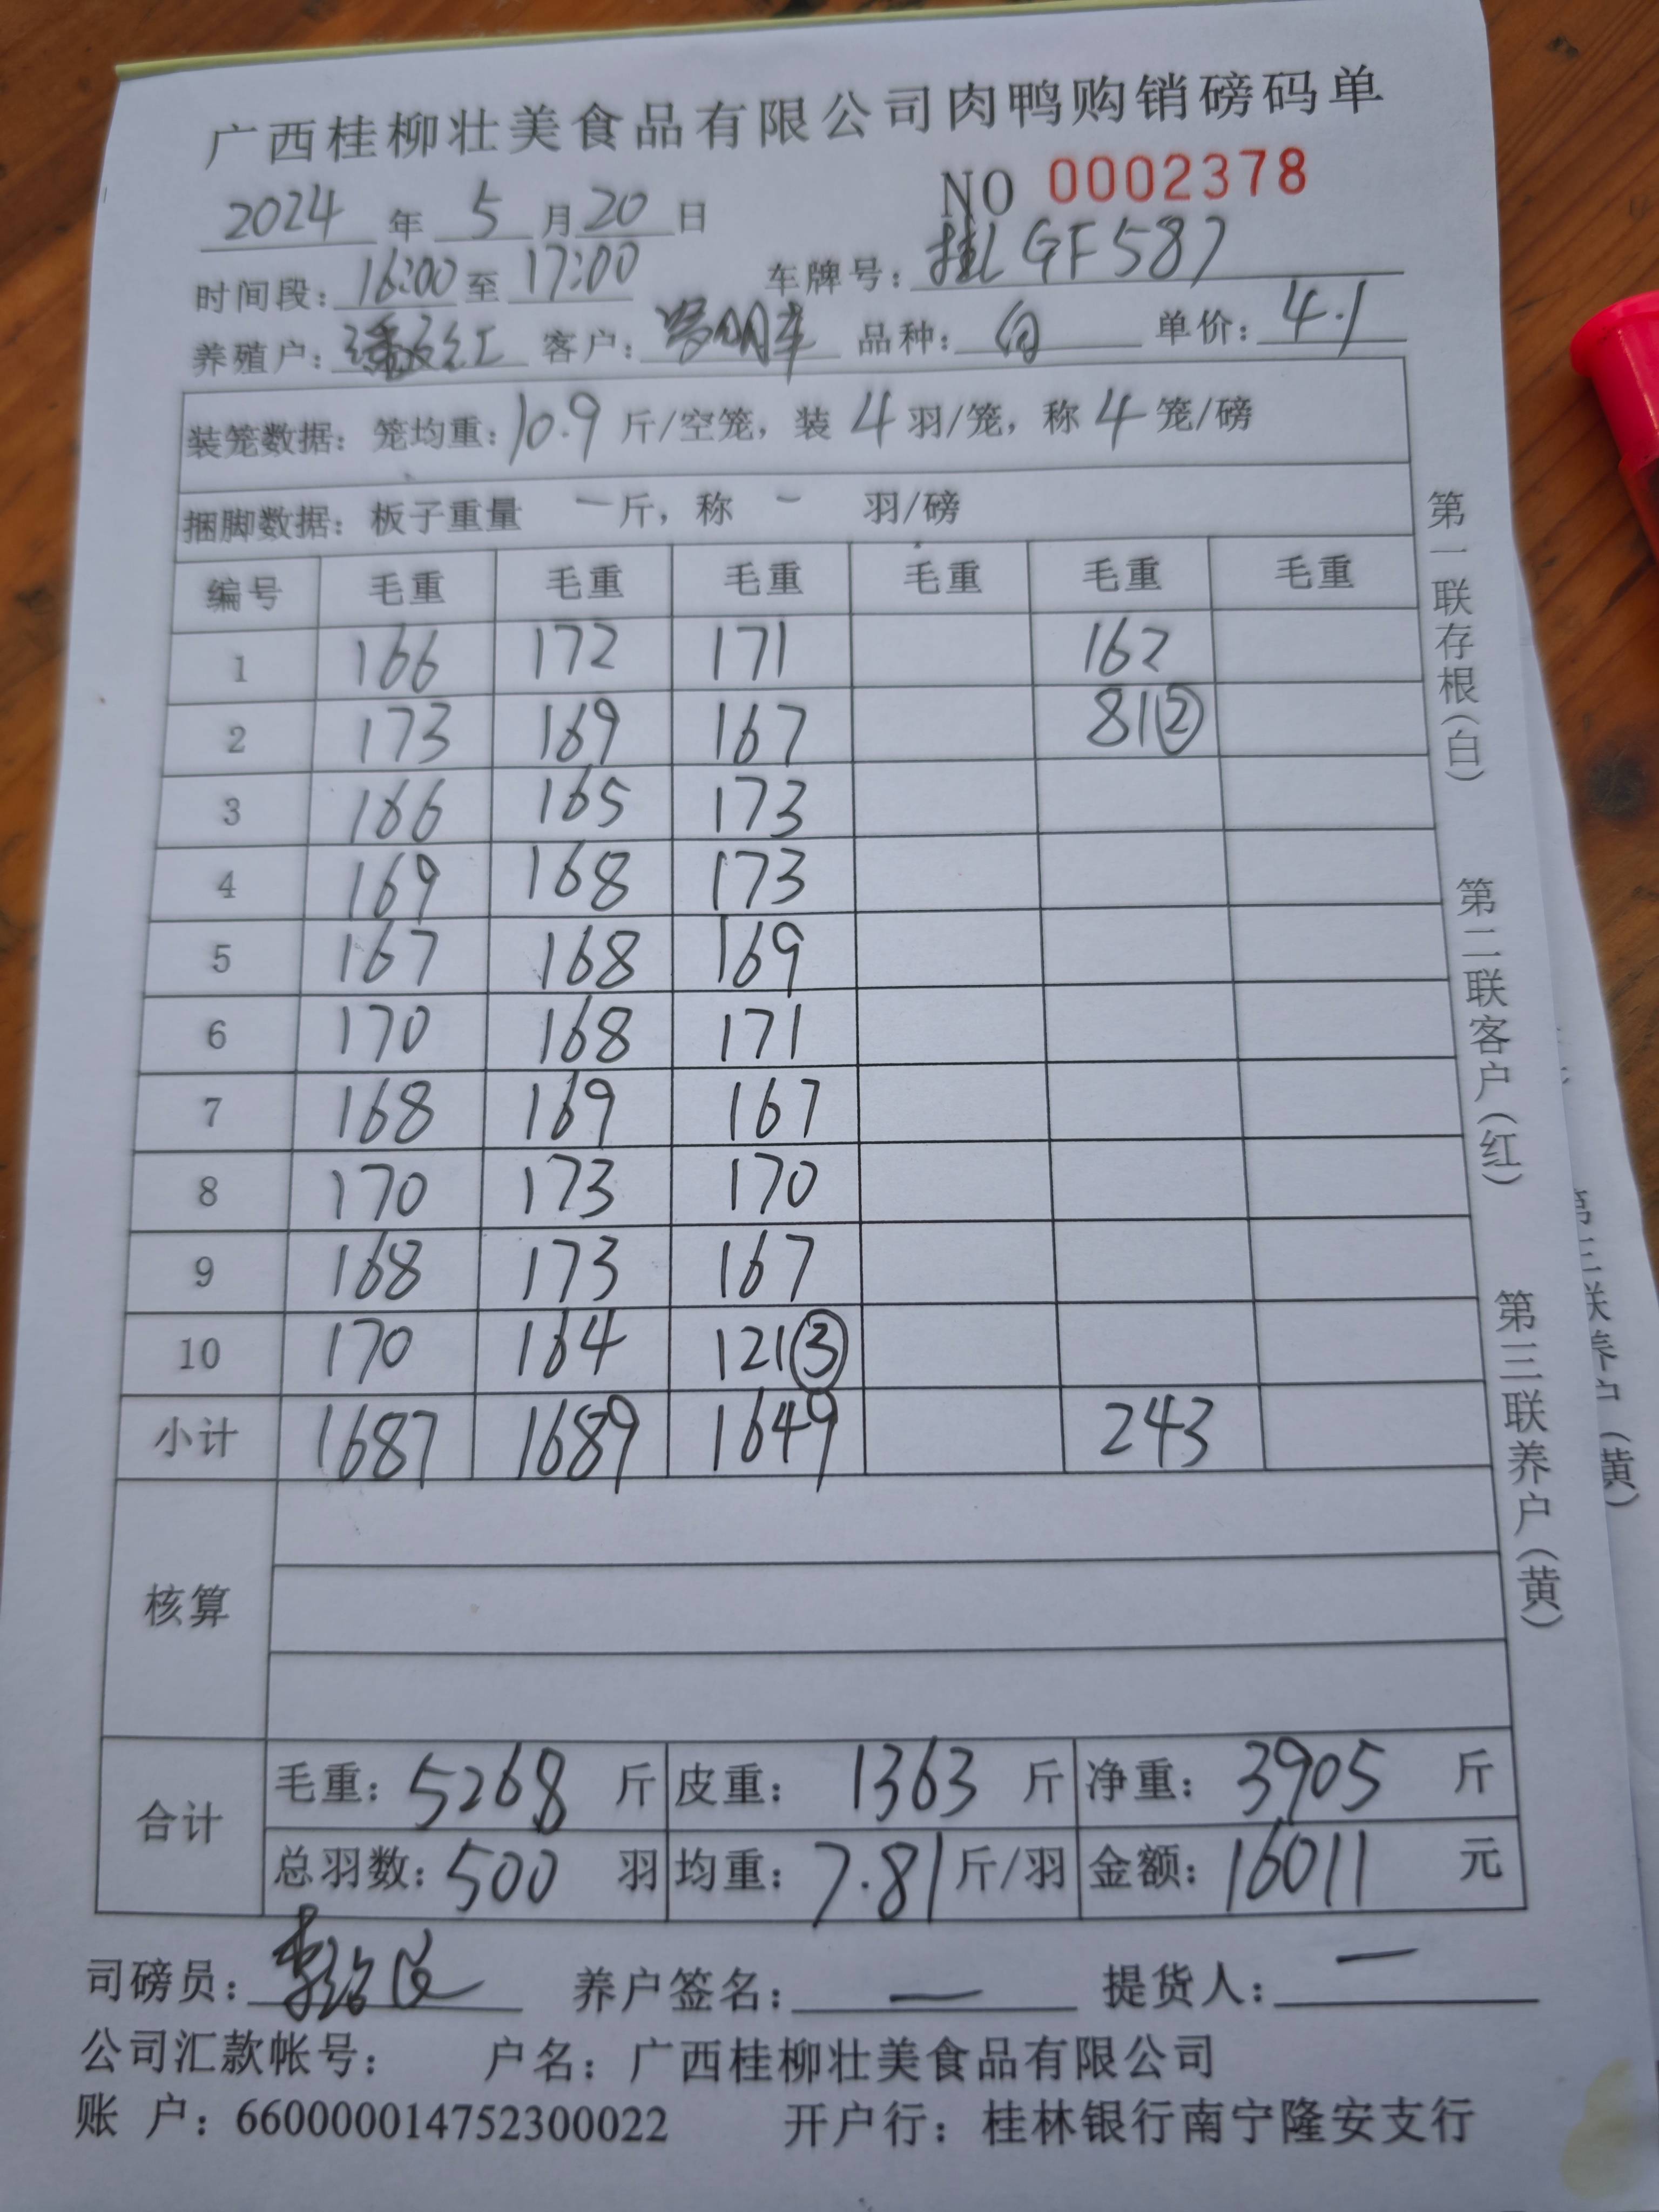 广西桂柳壮美食品有限公司肉鸭购销磅码单
NO 0002378
2024 年 5 月 20 日
时间段：16:00 至 17:00 车牌号：桂L GF587
养殖户： 客户： 品种：白 单价：4.1
装笼数据：笼均重：10.9 斤/空笼，装 4 羽/笼，称 4 笼/磅
捆脚数据：板子重量 一 斤，称 一 羽/磅
编号 毛重 毛重 毛重 毛重 毛重 毛重
1 166 172 171 162
2 173 169 167 81②
3 166 165 173
4 169 168 173
5 167 168 169
6 170 168 171
7 168 169 167
8 170 173 170
9 168 173 167
10 170 164 121③
小计 1687 1689 1649 243
核算
合计
毛重：5268 斤 皮重：1363 斤 净重：3905 斤
总羽数：500 羽 均重：7.81 斤/羽 金额：16011 元
司磅员： 养户签名：一 提货人：一
公司汇款帐号： 户名：广西桂柳壮美食品有限公司
账 户：660000014752300022 开户行：桂林银行南宁隆安支行
第一联存根（白） 第二联客户（红） 第三联养户（黄）
第三联养户（黄）